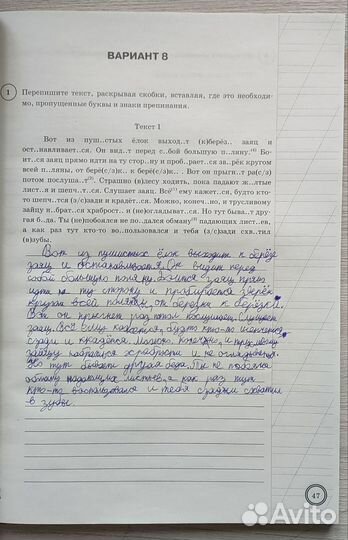 ВАРИАНТ 8
1 Перепишите текст, раскрывая скобки, вставляя, где это необходи-
мо, пропущенные буквы и знаки препинания.
Текст 1
Вот из пуш..стых ёлок выход..т (к)берёз.. заяц и
ост..навливает..ся. Он вид..т перед с..бой большую п..ляну.(4) Бо-
ит..ся заяц прямо идти на ту стор..ну и проб..рает..ся зв..рёк кругом
всей п..ляны, от берё(с/з)к.. к берё(с/з)к.. . Вот он прыгн..т ра(с/з)
потом послуша..т(2). Страшно (в)лесу ходить, пока падают ж..лтые
лист..я и шепч..т..ся. Слушает заяц. Всё(1) ему кажет..ся, будто кто-
то шепч..т..ся (з/с)зади и крадёт..ся. Можно, конечн..о, и трусливому
зайцу н..брат..ся храброст.. и (не)оглядыват..ся. Но тут быва..т друга
ая б..да. Ты (не)побоялся не по..дался обману(3) падающих лист..ев,
а как раз тут кто-то во..пользовался и тебя (з/с)зади схв..тил
(в)зубы.
Вот из пушистых ёлок выходит к берёзе
заяц и останавливается. Он видит перед
собой большую поляну. Боится заяц прямо
идти на ту сторону и пробирается зверёк
кругом всей поляны, от берёзки к берёзке.
Вот он прыгнет раз потом послушает. Слушает
заяц. Всё ему кажется, будто кто-то шепчется
сзади и крадётся. Можно, конечно, и трусливому
зайцу набраться храбрости и не оглядываться.
Но тут бывает другая беда. Ты не поддался
обману падающих листьев, а как раз тут
кто-то воспользовался и тебя сзади схватил
в зубы.
47
Avito